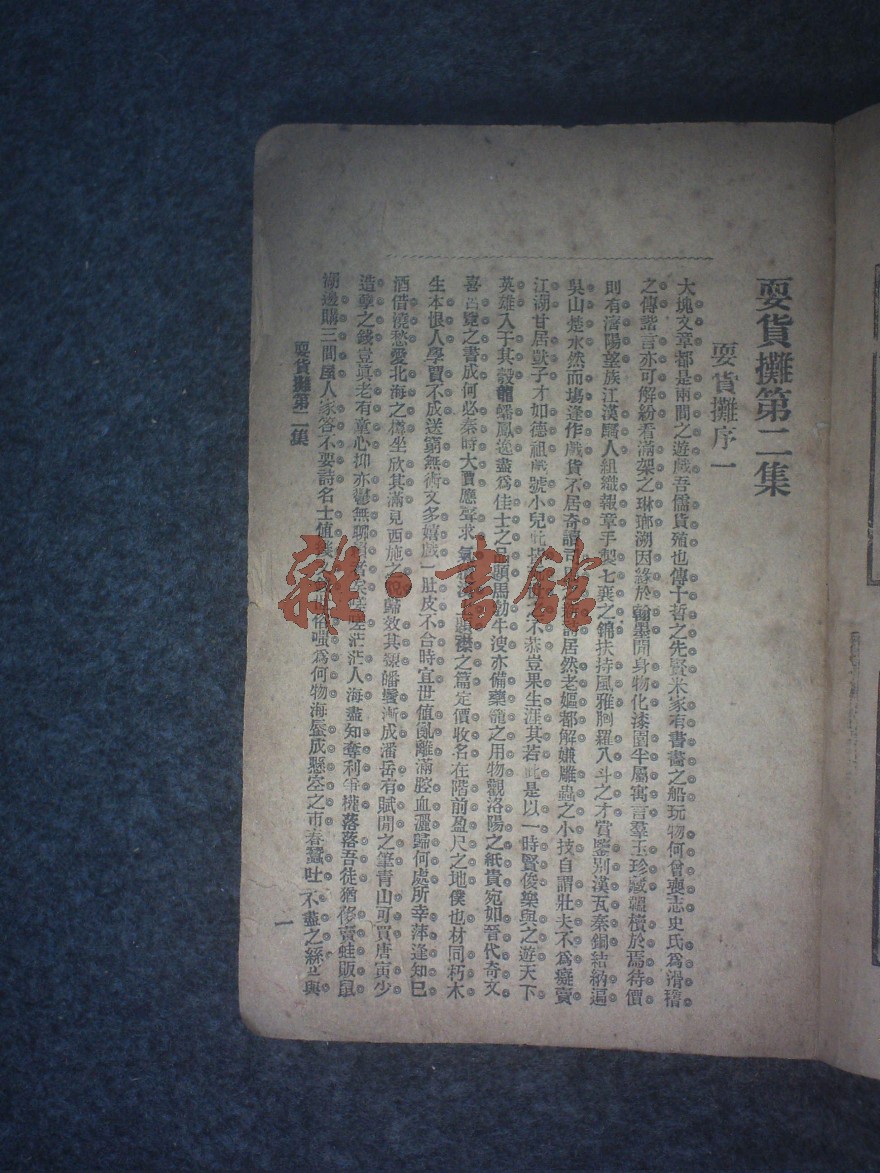 耍貨攤第二集
耍貨攤序一
大塊文章都是兩間之遊戲吾儒貨殖也傳十哲之先賢米家有書畫之船玩物何曾喪志史氏爲滑稽
之傳諧言亦可解紛看滿架之琳瑯溯因緣於翰墨閒身物化漆園半屬寓言羣玉珍藏韞櫝於焉待價
則有濟陽望族江漢騷人組織報章手製七襄之錦扶持風雅胸羅八斗之才賞鑒別漢瓦秦銅結納遍
吳山楚水然而塲逢作戲貨不居奇謂居然老嫗都解嫌雕蟲之小技自謂壯夫不爲癡賣
江湖甘居獃子才如德祖戲號小兒此不恭豈果生涯其若此是以一時賢俊樂與之遊天下
英雄入于其彀龍蟠鳳逸盡爲佳士之品題馬勃牛溲亦備藥籠之用物觀洛陽之紙貴宛如晉代奇文
喜呂覽之書成何必秦時大賈應聲求襟之篇定價收名在階前盈尺之地僕也材同朽木
生本恨人學買不成送窮無術文多嬉戲一肚皮不合時宜世值亂離滿腔血灑歸何處所幸萍逢知巳
酒借澆愁愛北海之樽坐欣其滿見西施之歸效其顰皤鬢漸成潘岳有賦閒之筆青山可買唐寅少
造孽之錢豈眞老有童心抑亦鬱無聊茫茫人海盡知奪利爭權落落吾徒猶移賣蛙販鼠
湖邊購三間屋人家答不要詩名士值嗤爲何物海蜃成懸空之市春蠶吐不盡之絲與
耍貨攤第二集
一
雜·書館